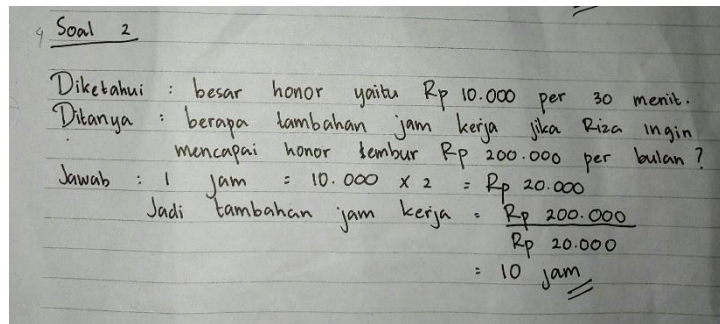 Soal 2
Diketahui : besar honor yaitu Rp 10.000 per 30 menit.
Ditanya : berapa tambahan jam kerja jika Riza ingin
mencapai honor lembur Rp 200.000 per bulan ?
Jawab : 1 jam = 10.000 x 2 = Rp 20.000
Jadi tambahan jam kerja = Rp 200.000
Rp 20.000
= 10 jam